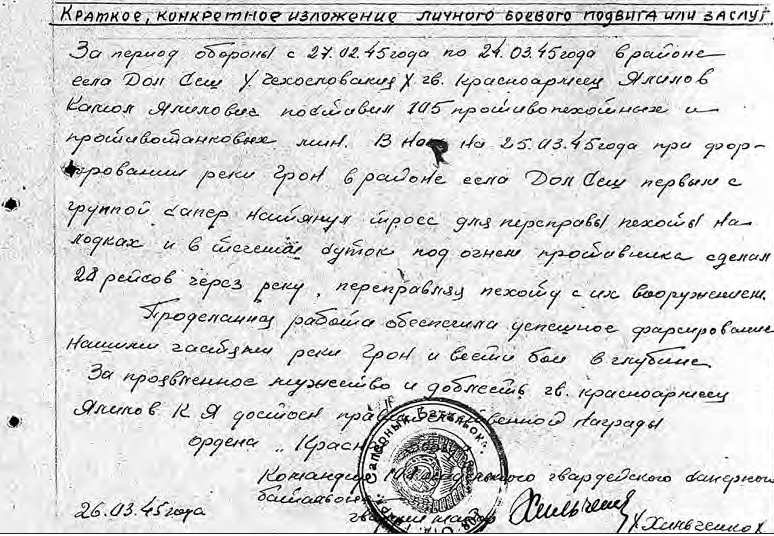 Краткое, конкретное изложение личного боевого подвига или заслуг
За период обороны с 27.02.45 года по 24.03.45 года в районе
села Дол Сеш /Чехословакия/ гв. красноармеец Ялилов
Камол Ялилович поставил 105 противопехотных и
противотанковых мин. В на 25.03.45 года при фор-
сировании реки Грон в районе села Дол Сеш первым с
группой сапер натянул тросс для переправы пехоты на
лодках и в течение суток под огнем противника сделал
28 рейсов через реку, переправляя пехоту с их вооружением.
Проделанная работа обеспечила успешное фарсирование
нашими частями реки Грон и вести бои в глубине.
За проявленное мужество и доблесть гв. красноармеец
Ялилов К Я достоин награды
ордена „Красн
Командир гвардейского саперного
батальона
26.03.45 года гвардии майор /Хильченко/
Саперный Батальон